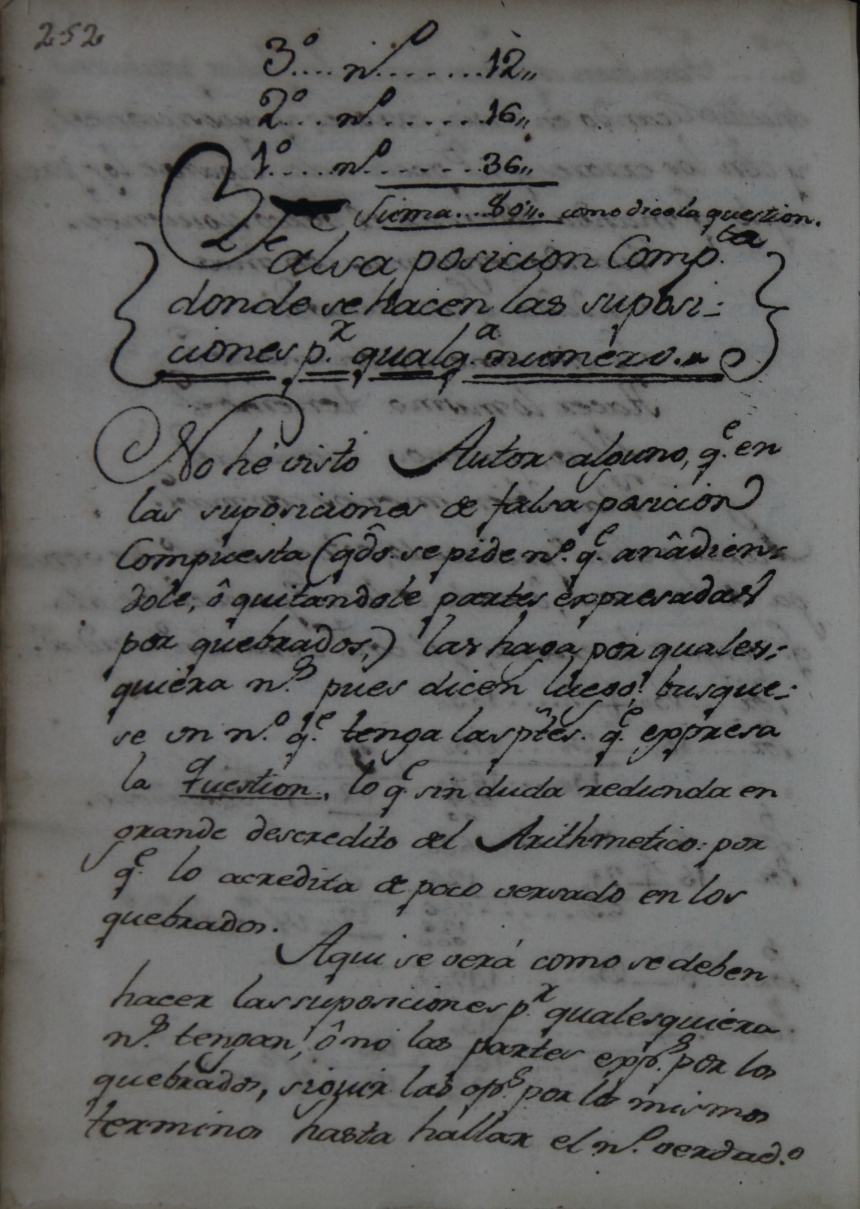 252
3º.... nº.......12,,
2º... nº.......16,,
1º.... nº.......36,,
Suma...80,,. como dice la question.
Falsa posicion Comp.ta
donde se hacen las suposi-
ciones p.r qualq.a numero.
No hé visto Autor alguno, q.e en
las suposiciones de falsa posicion
Compuesta (qdo. se pide nº. q.e añadien-
dole, ô quitandole partes expresadas
por quebrados,) las haga por quales-
quiera n.s pues dicen luego: busque-
se un n.º q.e tenga las ptes. q.e expresa
la question, lo q.e sin duda redunda en
grande descredito del Arithmetico: por
q.e lo acredita de poco versado en los
quebrados.
Aqui se verá como se deben
hacer las suposiciones p.r qualesquiera
n.s tengan, ô no las partes exp.s por los
quebrados, siguir las op.s por los mismos
terminos hasta hallar el n.º verdad.o